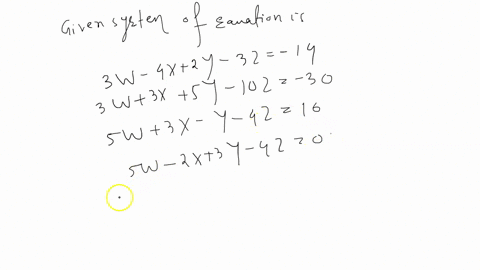 Given system of Equation is
3W - 4X + 2Y - 3Z = -14
3W + 3X + 5Y - 10Z = -30
5W + 3X - Y - 4Z = 16
5W - 2X + 3Y - 4Z = 0